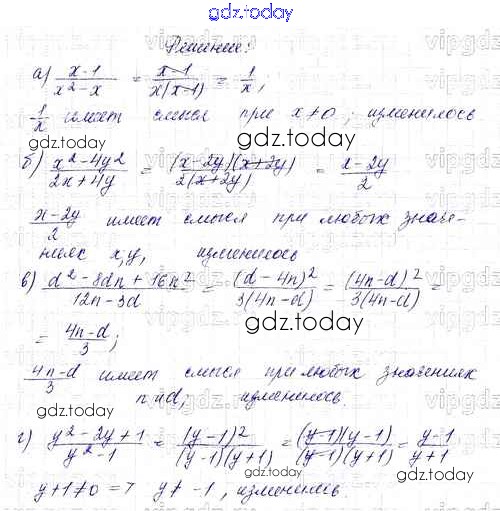 gdz.today
Решение:
а) \frac{x-1}{x^2-x} = \frac{x-1}{x(x-1)} = \frac{1}{x},
\frac{1}{x} имеет смысл при x≠0, изменилось
gdz.today
б) \frac{x^2-4y^2}{2x+4y} = \frac{(x-2y)(x+2y)}{2(x+2y)} = \frac{x-2y}{2}
gdz.today
\frac{x-2y}{2} имеет смысл при любых значе-
ниях x,y, изменилось
gdz.today
в) \frac{d^2-8dn+16n^2}{12n-3d} = \frac{(d-4n)^2}{3(4n-d)} = \frac{(4n-d)^2}{3(4n-d)} =
= \frac{4n-d}{3};
gdz.today
\frac{4n-d}{3} имеет смысл при любых значениях
n и d, изменилось.
gdz.today
г) \frac{y^2-2y+1}{y^2-1} = \frac{(y-1)^2}{(y-1)(y+1)} = \frac{(y-1)(y-1)}{(y-1)(y+1)} = \frac{y-1}{y+1}
gdz.today
y+1≠0 => y≠-1, изменилось.
gdz.today